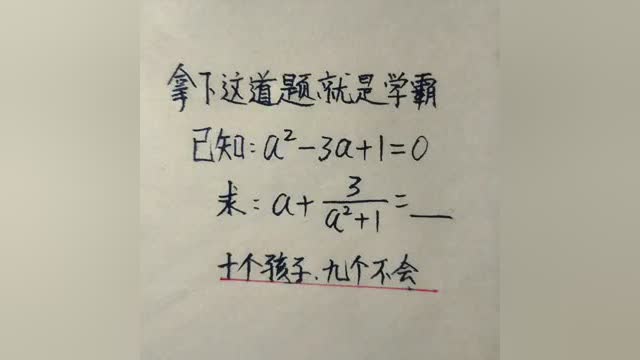 拿下这道题、就是学霸
已知: a²-3a+1=0
求: a+3/(a²+1)=__
十个孩子、九个不会